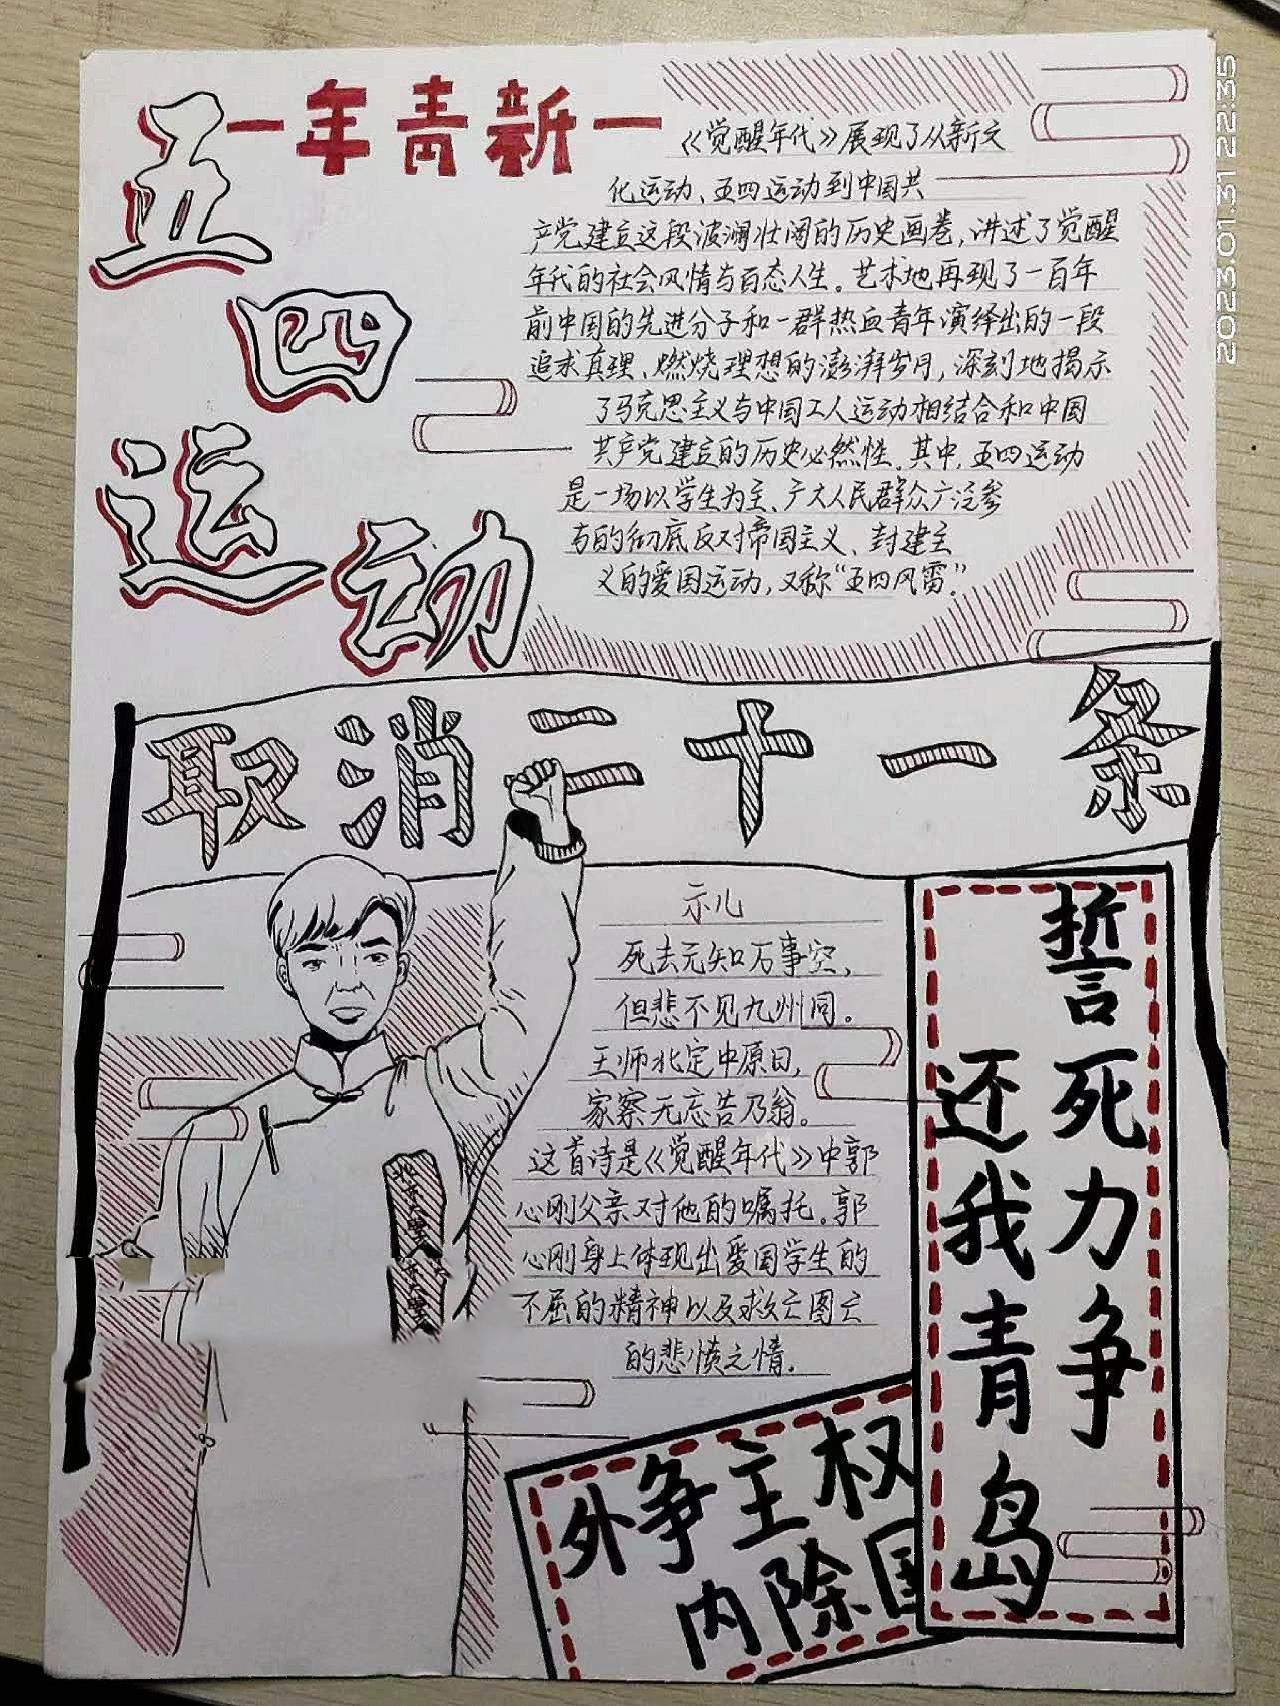 五四运动
一年青新一
《觉醒年代》展现了从新文
化运动、五四运动到中国共
产党建立这段波澜壮阔的历史画卷,讲述了觉醒
年代的社会风情与百态人生。艺术地再现了一百年
前中国的先进分子和一群热血青年演绎出的一段
追求真理、燃烧理想的澎湃岁月,深刻地揭示
了马克思主义与中国工人运动相结合和中国
共产党建立的历史必然性。其中,五四运动
是一场以学生为主、广大人民群众广泛参
与的彻底反对帝国主义、封建主
义的爱国运动,又称“五四风雷”.
取消二十一条
示儿
死去元知万事空,
但悲不见九州同。
王师北定中原日,
家祭无忘告乃翁。
这首诗是《觉醒年代》中郭
心刚父亲对他的嘱托。郭
心刚身上体现出爱国学生的
不屈的精神以及救亡图亡
的悲愤之情.
誓死力争
还我青岛
外争主权
内除国
北京大学
2023.01.31 22:35